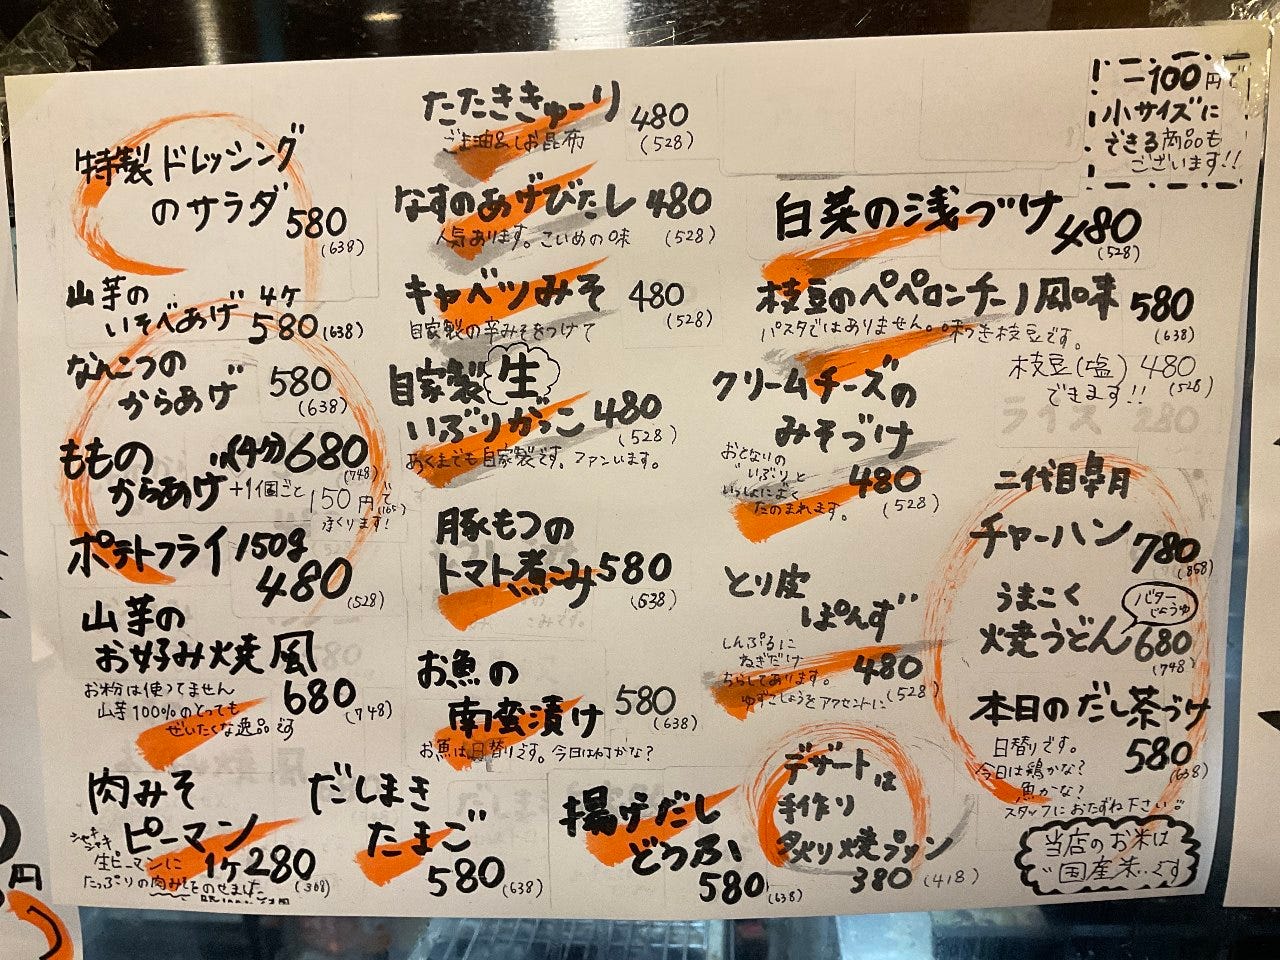 特製ドレッシング
のサラダ 580
(638)
山芋の
いそべあげ 4ヶ 580 (638)
なんこつの
からあげ 580
(638)
ももの
からあげ (4ヶ) 680
(748)
+1個ごと 150円で (165)
承ります!
ポテトフライ 150g
480
(528)
山芋の
お好み焼風
680
(748)
お粉は使ってません
山芋100%のとっても
ぜいたくな逸品です
肉みそ
ピーマン
1ヶ 280
(308)
シャキシャキ
生ピーマンに
たっぷりの肉みそをのせました
だしまき
たまご
580 (638)
たたききゅーり 480
(528)
ごま油&しお昆布
なすのあげびたし 480
(528)
人気あります。こいめの味
キャベツみそ 480
(528)
自家製の辛みそをつけて
自家製 生
いぶりがっこ 480
(528)
あくまでも自家製です。ファンいます。
豚もつの
トマト煮こみ 580
(638)
お魚の
南蛮漬け 580
(638)
お魚は日替りです。今日は何かな?
揚げだし
どうふ
580 (638)
二100円で
小サイズに
できる商品も
ございます!!
白菜の浅づけ 480
(528)
枝豆のペペロンチーノ風味 580
(638)
パスタではありません。味つき枝豆です。
枝豆(塩) 480
(528)
できます!!
クリームチーズの
みそづけ
480
(528)
おとなりの
"いぶり"と
いっしょによく
たのまれます。
とり皮
ぽんず
480
(528)
しんぷるに
ねぎだけ
ちらしてあります。
ゆずこしょうをアクセントに
デザートは
手作り
炙り焼プリン
380 (418)
二代目皐月
チャーハン 780
(858)
うまこく
焼うどん 680
(748)
バター
じょうゆ
本日のだし茶づけ
580
(638)
日替りです。
今日は鶏かな?
魚かな?
スタッフにおたずね下さい
当店のお米は
国産米です
ライス 280
円